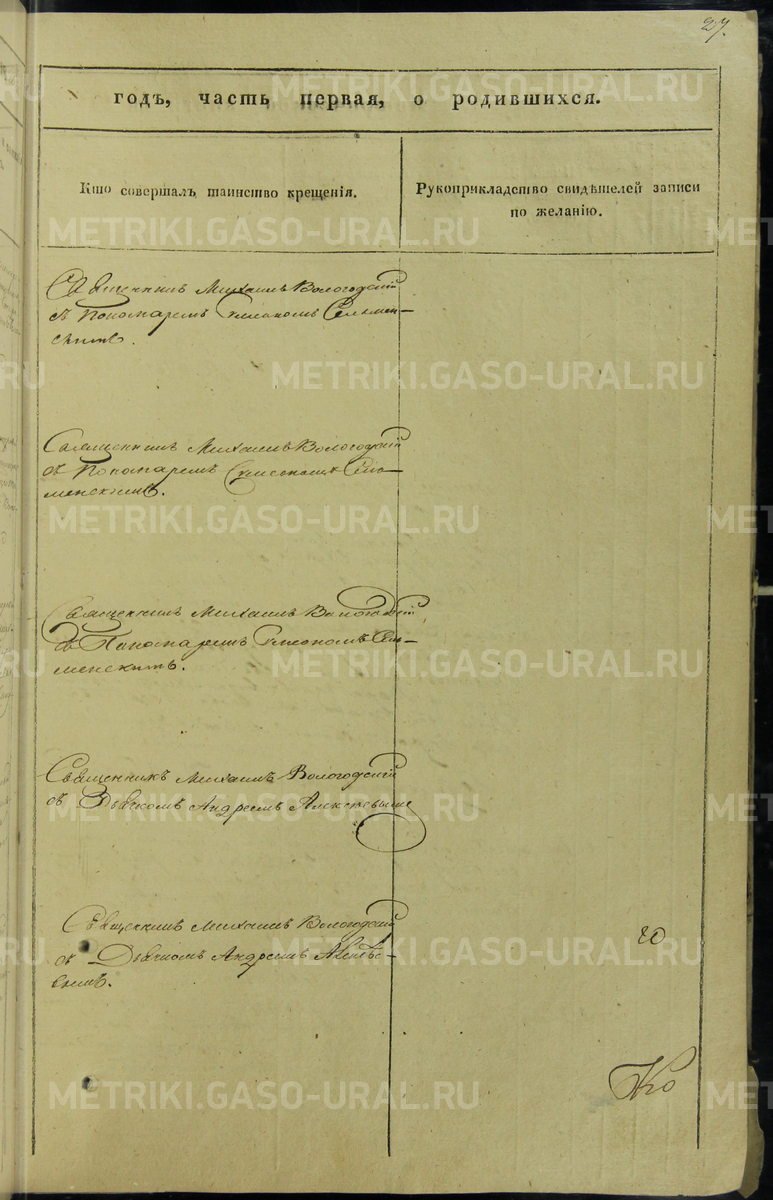 27.
годъ, часть первая, о родившихся.
Кто совершалъ таинство крещенія.
Рукоприкладство свидѣтелей записи
по желанію.
Священникъ Михаилъ Вологодскій
съ Пономаремъ Симеономъ Сельмен-
скимъ.
Священникъ Михаилъ Вологодскій
съ Пономаремъ Симеономъ Сель-
менскимъ.
Священникъ Михаилъ Вологодскій
съ Пономаремъ Симеономъ Сель-
менскимъ.
Священникъ Михаилъ Вологодскій
съ Дьячкомъ Андреемъ
Священникъ Михаилъ Вологодскій
съ Дьячкомъ Андреемъ
20
METRIKI.GASO-URAL.RU